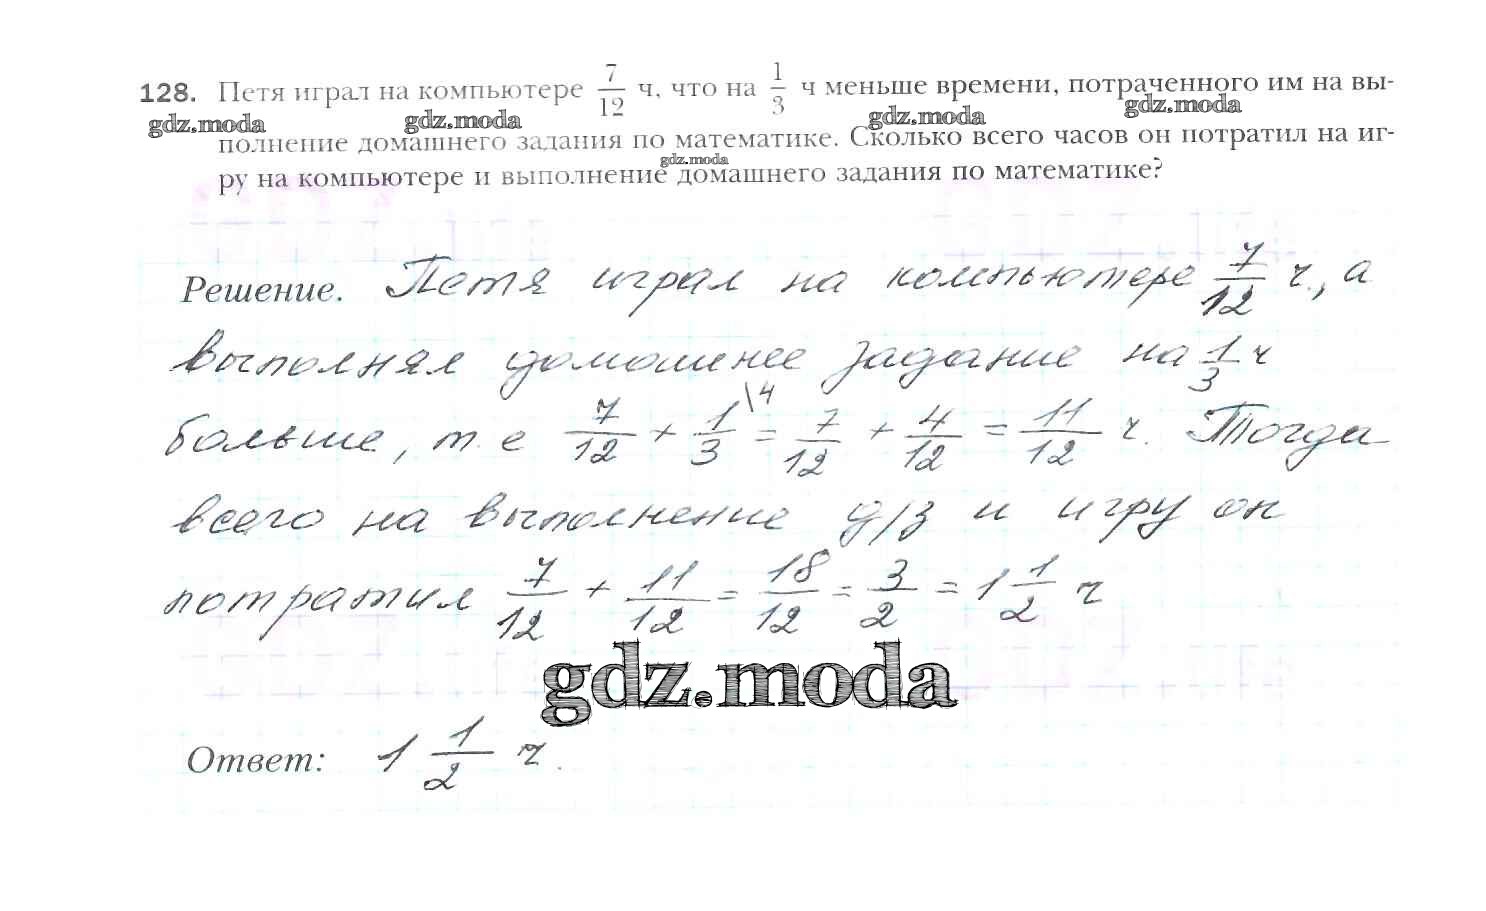 128. Петя играл на компьютере 7/12 ч, что на 1/3 ч меньше времени, потраченного им на вы-
gdz.moda gdz.moda gdz.moda gdz.moda
полнение домашнего задания по математике. Сколько всего часов он потратил на иг-
gdz.moda
ру на компьютере и выполнение домашнего задания по математике?
Решение. Петя играл на компьютере 7/12 ч., а
выполнял домошнее задание на 1/3 ч
больше, т.е 7/12 + 1/3 \4 = 7/12 + 4/12 = 11/12 ч. Тогда
всего на выполнение д/з и игру он
потратил 7/12 + 11/12 = 18/12 = 3/2 = 1 1/2 ч
gdz.moda
Ответ: 1 1/2 ч.